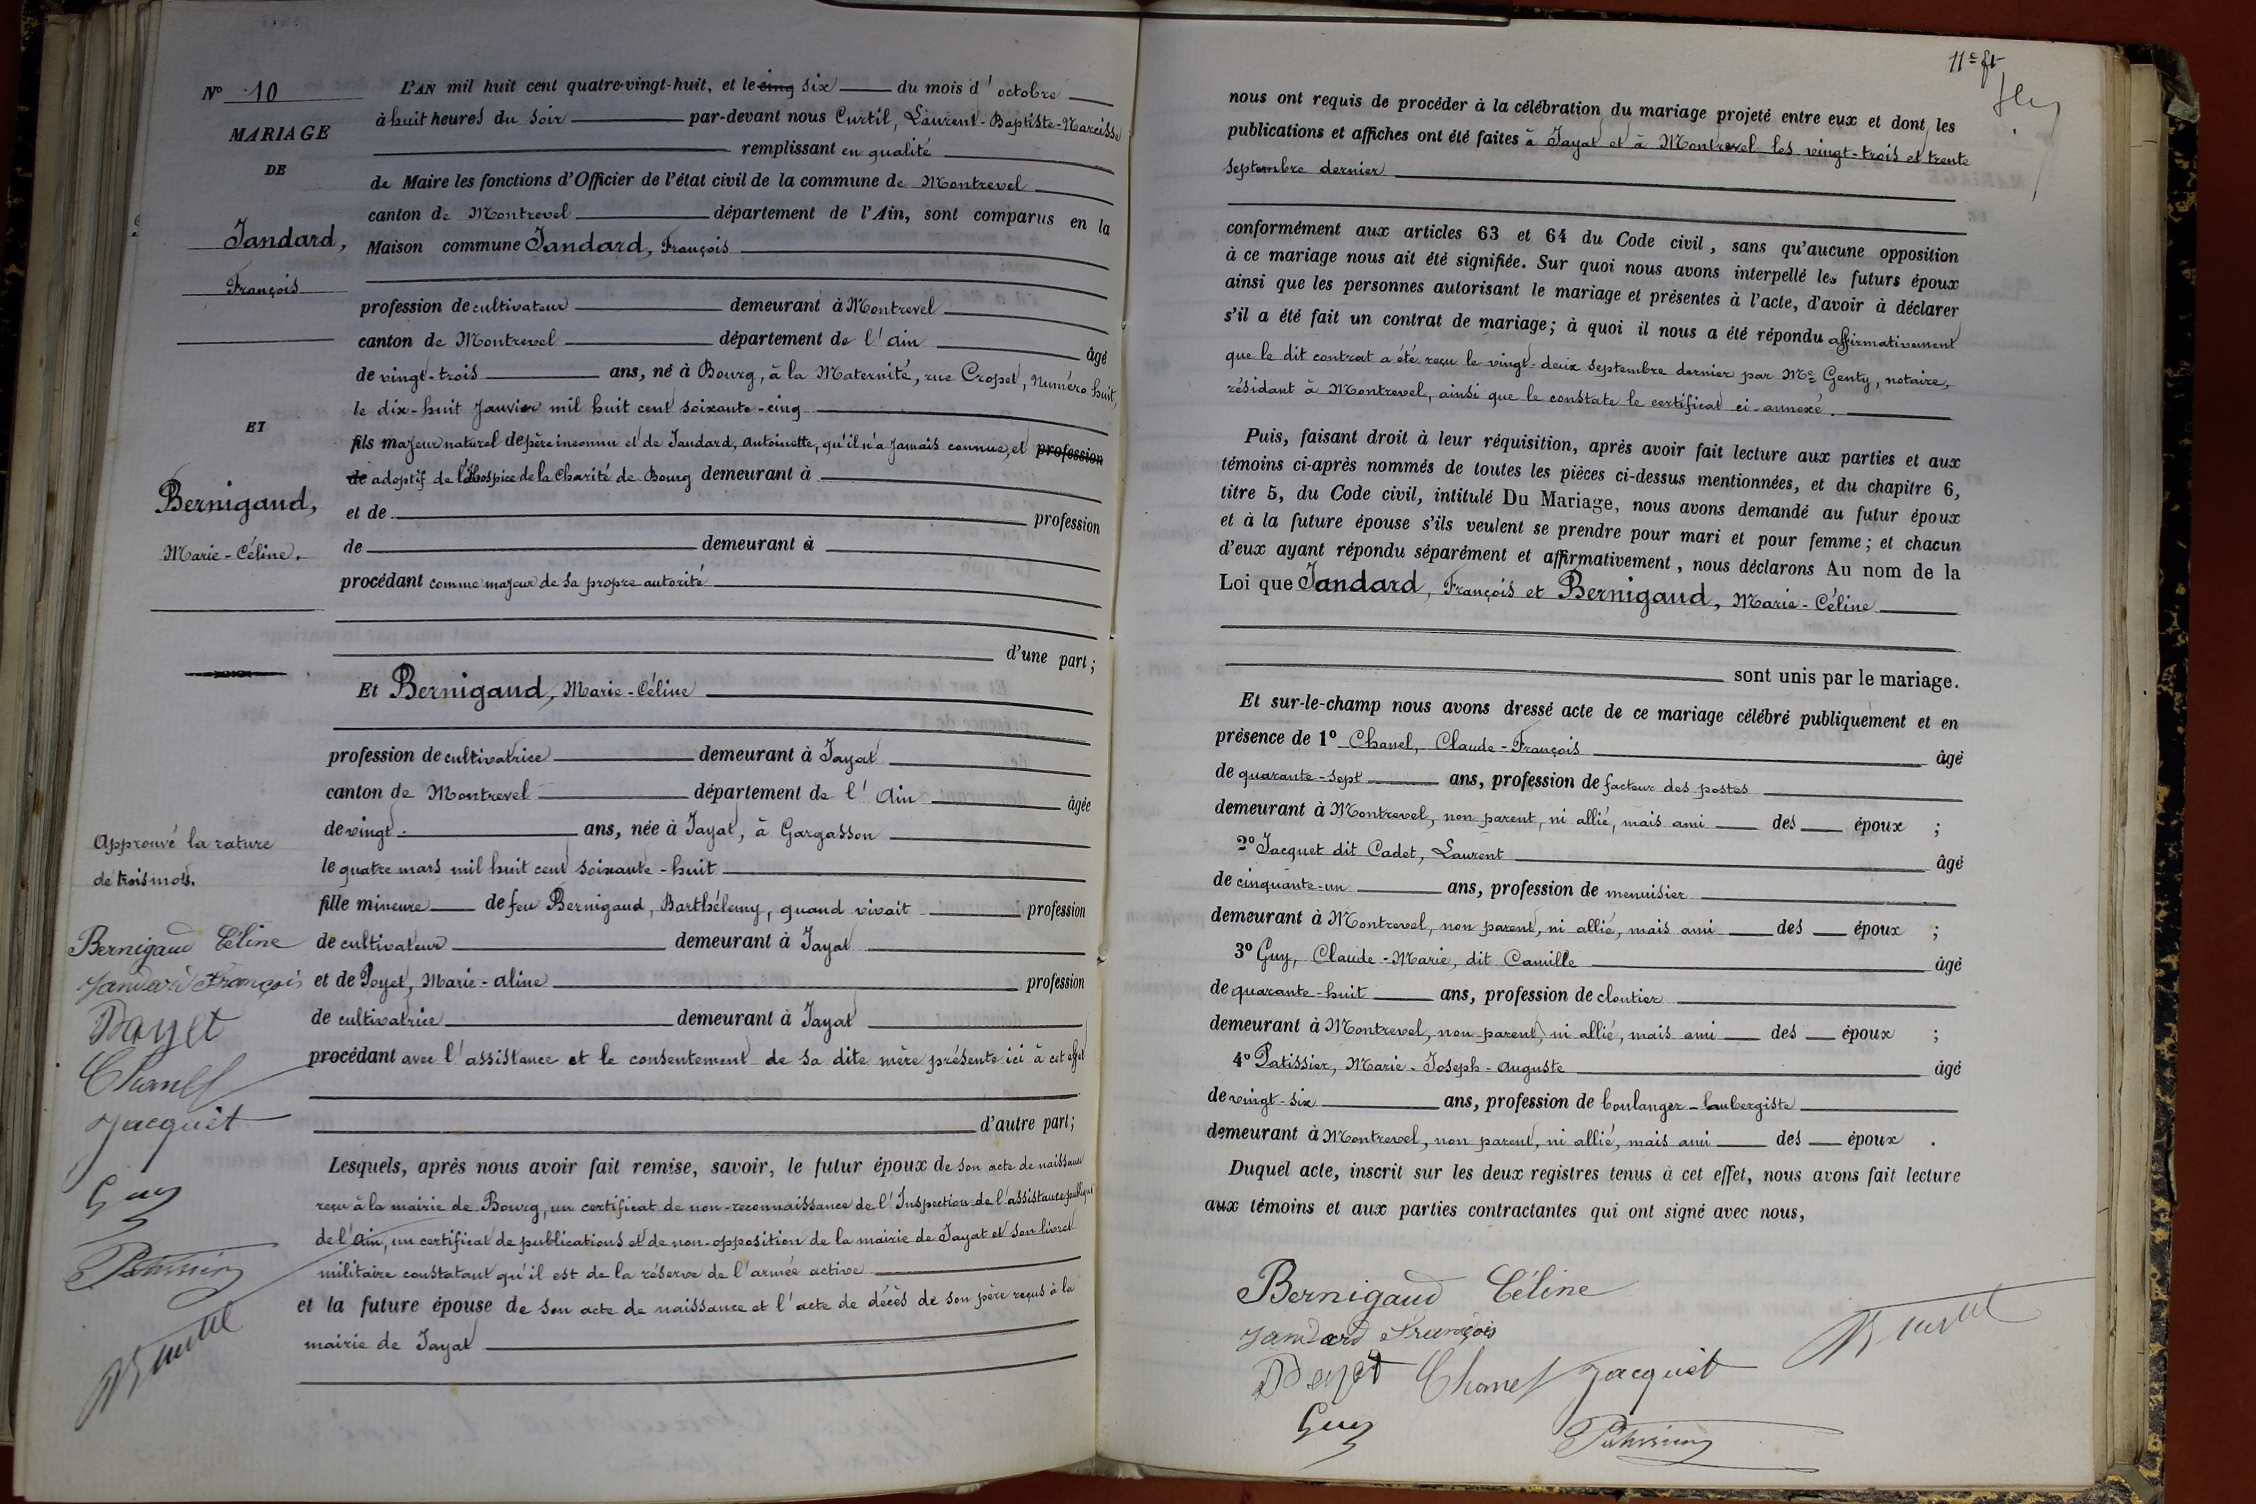 N° 10
MARIAGE
DE
Jandard,
François
ET
Bernigaud,
Marie-Céline.
Approuvé la rature
de trois mots.
Bernigaud Céline
Jandard François
Chanel
Jacquet
Guy
Patissier
L'AN mil huit cent quatre-vingt-huit, et le cinq six du mois d'octobre
à huit heures du soir par-devant nous Curtil, Laurent-Baptiste-Narcisse
remplissant en qualité
de Maire les fonctions d'Officier de l'état civil de la commune de Montrevel
canton de Montrevel département de l'Ain, sont comparus en la
Maison commune Jandard, François
profession de cultivateur demeurant à Montrevel
canton de Montrevel département de l'Ain âgé
de vingt-trois ans, né à Bourg, à la Maternité, rue Cropet, numéro huit,
le dix-huit Janvier mil huit cent soixante-cinq
fils majeur naturel de père inconnu et de Jandard, Antoinette, qu'il n'a jamais connue, et profession
de adoptif de l'hospice de la Charité de Bourg demeurant à
et de profession
de demeurant à
procédant comme majeur de sa propre autorité
d'une part;
Et Bernigaud, Marie-Céline
profession de cultivatrice demeurant à Jayat
canton de Montrevel département de l'Ain âgée
de vingt ans, née à Jayat, à Gargasson
le quatre mars mil huit cent soixante-huit
fille mineure de feu Bernigaud, Barthélemy, quand vivait profession
de cultivateur demeurant à Jayat
et de Poyet, Marie-Aline profession
de cultivatrice demeurant à Jayat
procédant avec l'assistance et le consentement de sa dite mère présente ici à cet effet
d'autre part;
Lesquels, après nous avoir fait remise, savoir, le futur époux de son acte de naissance
reçu à la mairie de Bourg, un certificat de non-reconnaissance de l'Inspection de l'assistance publique
de l'Ain, un certificat de publications et de non-opposition de la mairie de Jayat et son livret
militaire constatant qu'il est de la réserve de l'armée active
et la future épouse de son acte de naissance et l'acte de décès de son père reçus à la
mairie de Jayat
11e ft
nous ont requis de procéder à la célébration du mariage projeté entre eux et dont les
publications et affiches ont été faites à Jayat et à Montrevel les vingt-trois et trente
septembre dernier
conformément aux articles 63 et 64 du Code civil, sans qu'aucune opposition
à ce mariage nous ait été signifiée. Sur quoi nous avons interpellé les futurs époux
ainsi que les personnes autorisant le mariage et présentes à l'acte, d'avoir à déclarer
s'il a été fait un contrat de mariage; à quoi il nous a été répondu affirmativement
que le dit contrat a été reçu le vingt-deux septembre dernier par Me Genty, notaire,
résidant à Montrevel, ainsi que le constate le certificat ci-annexé.
Puis, faisant droit à leur réquisition, après avoir fait lecture aux parties et aux
témoins ci-après nommés de toutes les pièces ci-dessus mentionnées, et du chapitre 6,
titre 5, du Code civil, intitulé Du Mariage, nous avons demandé au futur époux
et à la future épouse s'ils veulent se prendre pour mari et pour femme; et chacun
d'eux ayant répondu séparément et affirmativement, nous déclarons Au nom de la
Loi que Jandard, François et Bernigaud, Marie-Céline
sont unis par le mariage.
Et sur-le-champ nous avons dressé acte de ce mariage célébré publiquement et en
présence de 1° Chanel, Claude-François âgé
de quarante-sept ans, profession de facteur des postes
demeurant à Montrevel, non parent, ni allié, mais ami des époux ;
2° Jacquet dit Cadet, Laurent âgé
de cinquante-un ans, profession de menuisier
demeurant à Montrevel, non parent, ni allié, mais ami des époux ;
3° Guy, Claude-Marie, dit Camille âgé
de quarante-huit ans, profession de cloutier
demeurant à Montrevel, non parent, ni allié, mais ami des époux ;
4° Patissier, Marie-Joseph-Auguste âgé
de vingt-six ans, profession de boulanger-aubergiste
demeurant à Montrevel, non parent, ni allié, mais ami des époux .
Duquel acte, inscrit sur les deux registres tenus à cet effet, nous avons fait lecture
aux témoins et aux parties contractantes qui ont signé avec nous,
Bernigaud Céline
Jandard François
Chanel Jacquet
Guy
Patissier